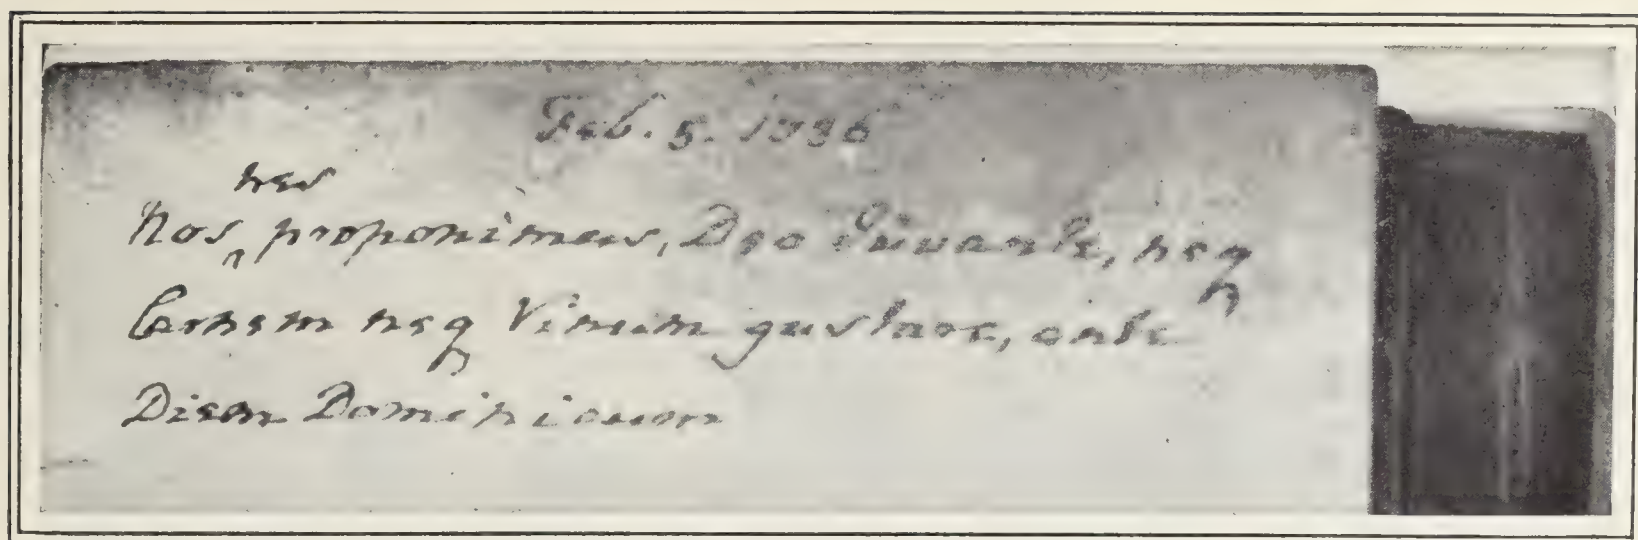 Feb. 5. 1736
nos
Nos‸ proponimus, Deo Juvante, neq
Carnem neq Vinum gustare, ante
Diem Dominicum